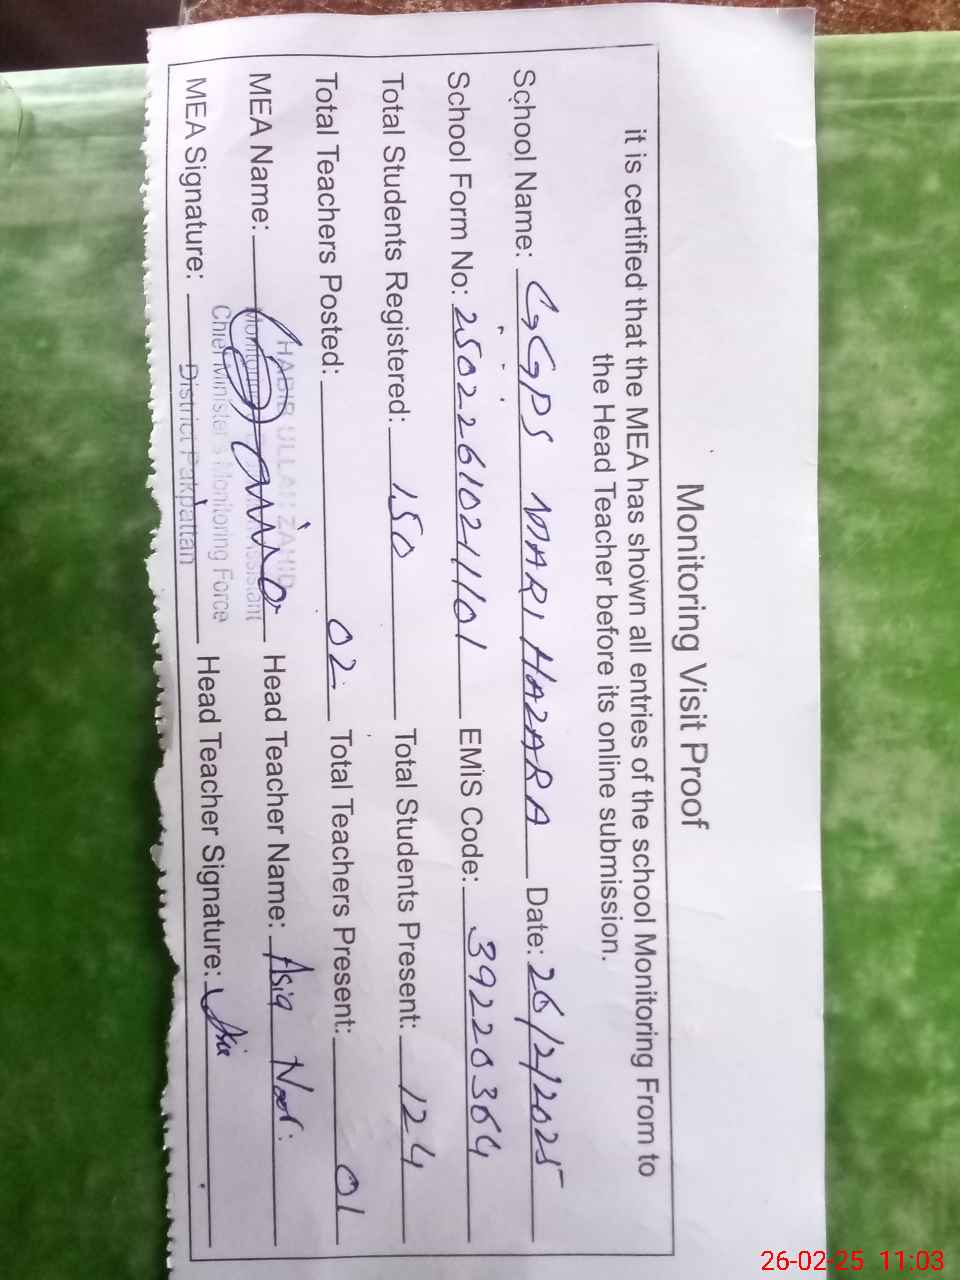 Monitoring Visit Proof
it is certified that the MEA has shown all entries of the school Monitoring From to
the Head Teacher before its online submission.
School Name: GGPS MARI HAZARA Date: 26/2/2025
School Form No: 25022610211101 EMIS Code: 39220364
Total Students Registered: 150 Total Students Present: 124
Total Teachers Posted: 02 Total Teachers Present: 01
HABIB ULLAH ZAHID
MEA Name: Monitoring Assistant Head Teacher Name: Asia Noor
Chief Minister's Monitoring Force
MEA Signature: District Pakpattan Head Teacher Signature:
26-02-25 11:03